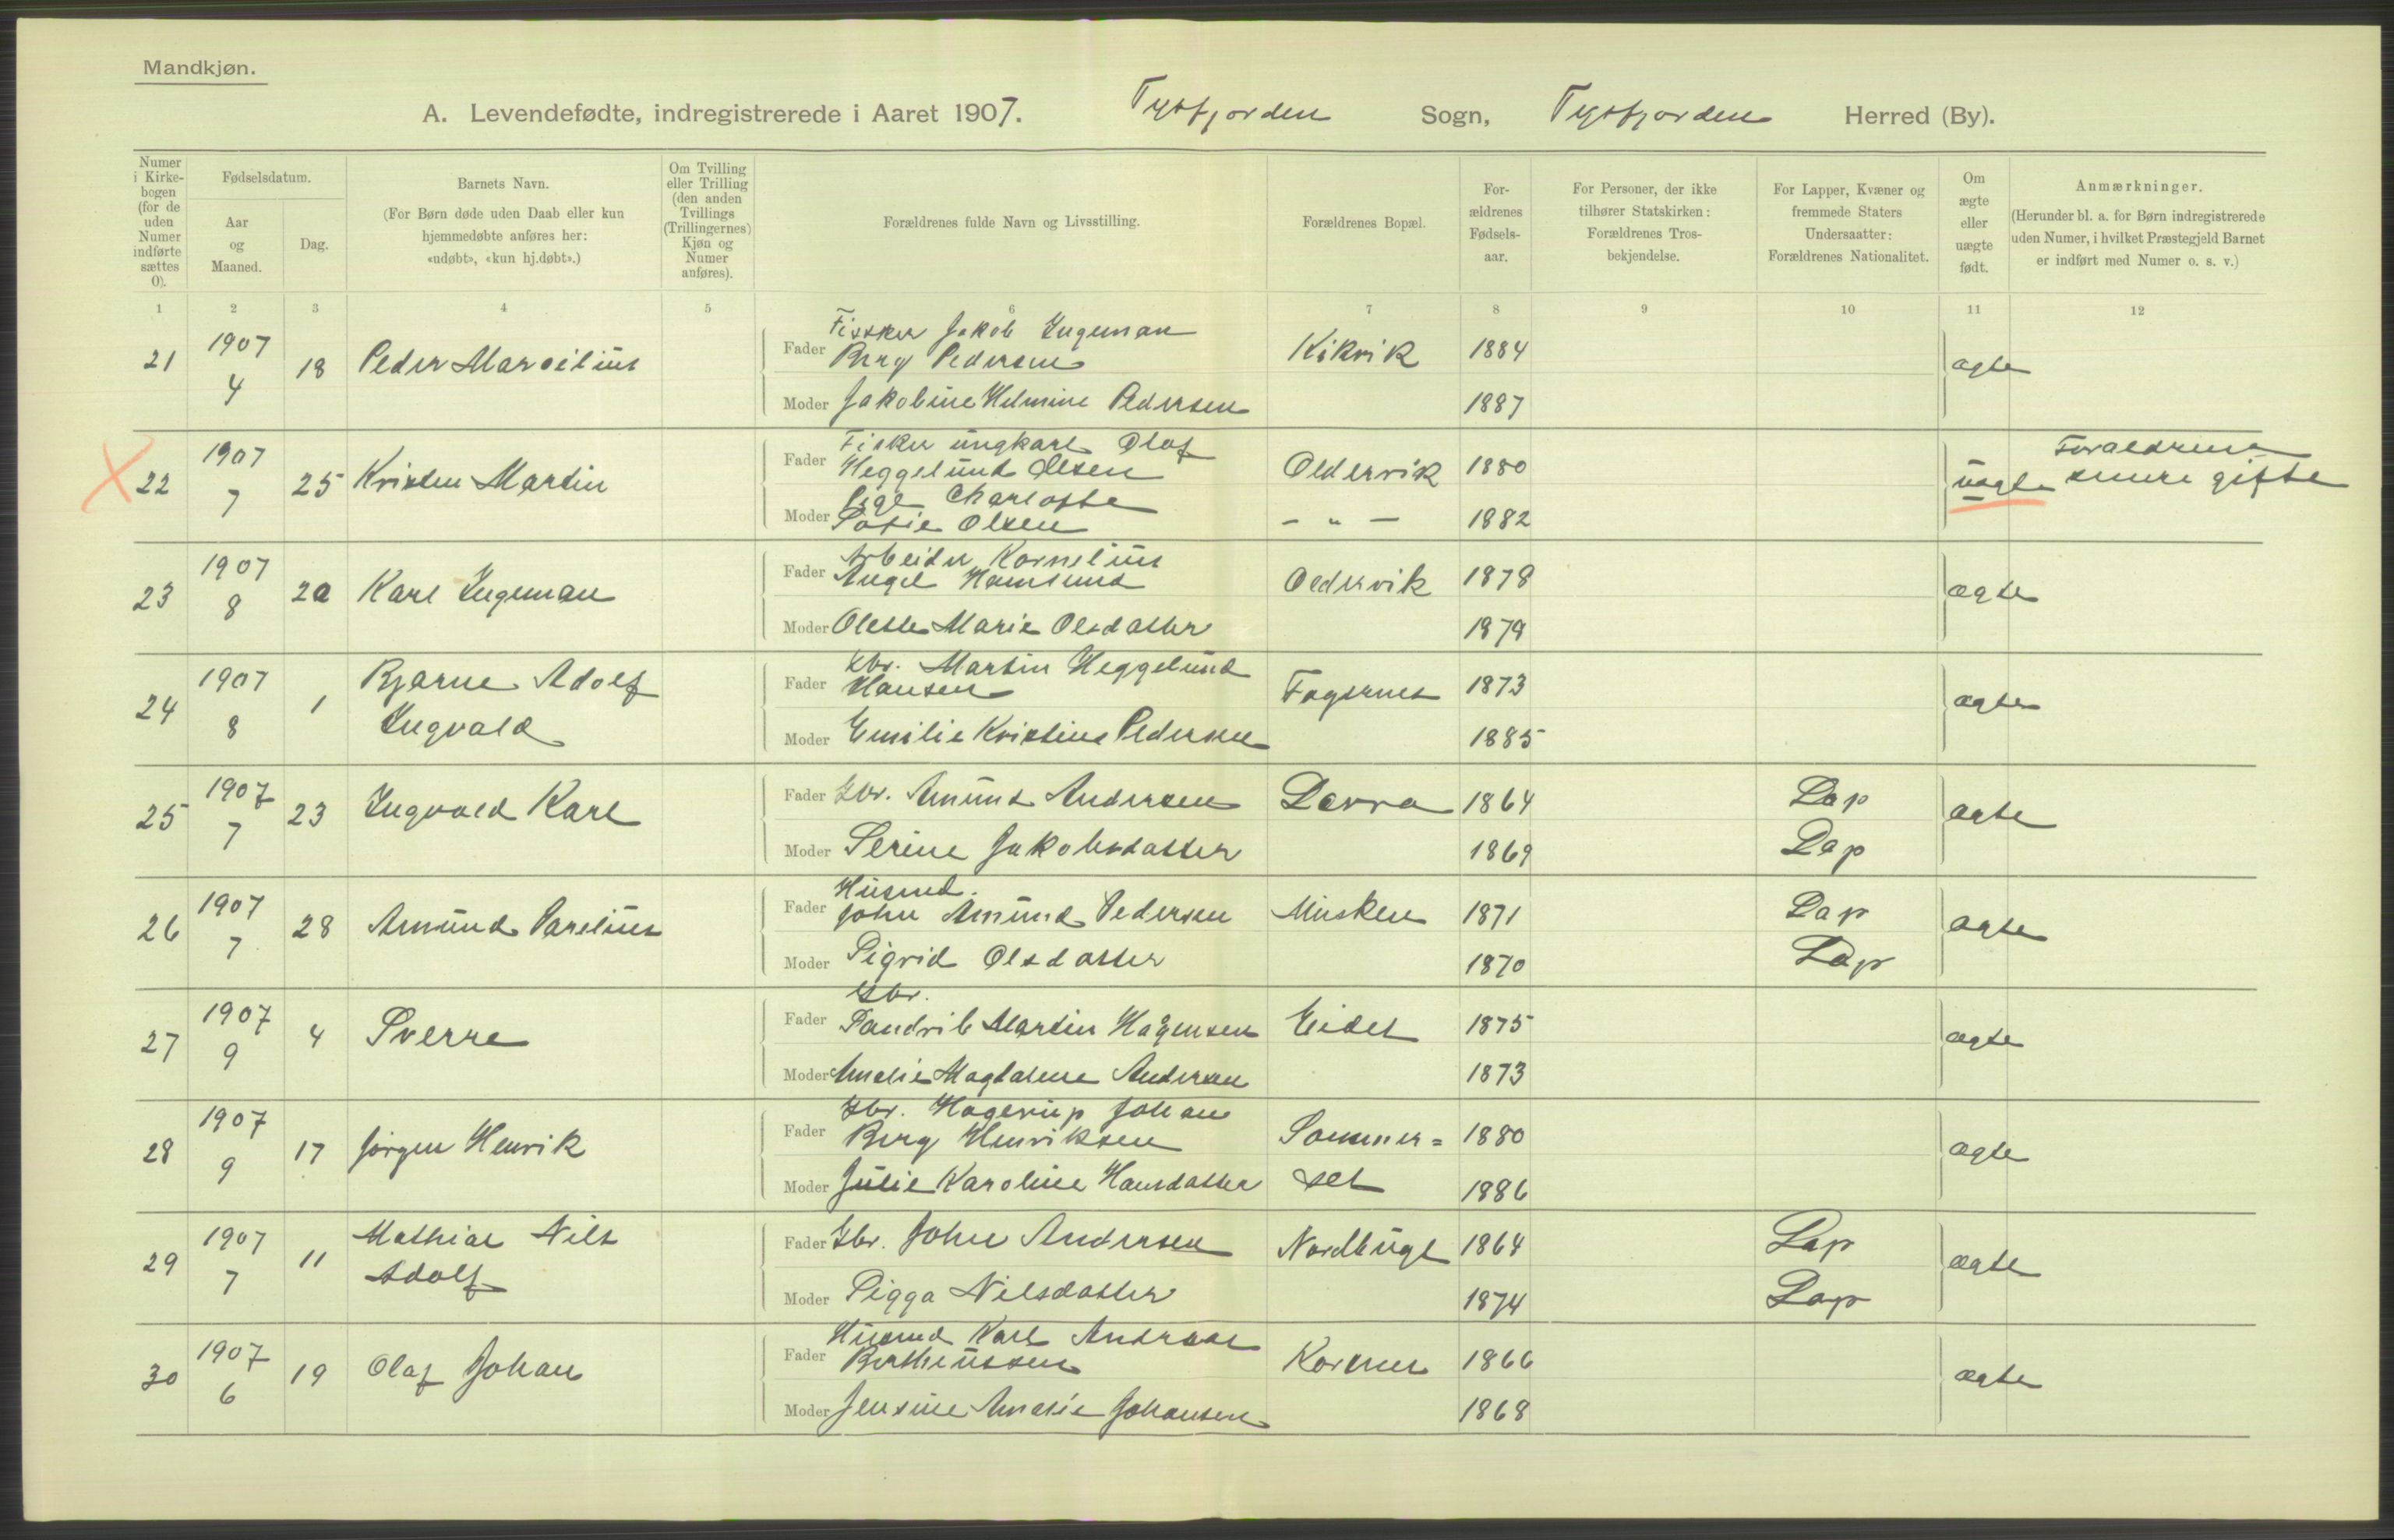 Mandkjøn.
A. Levendefødte, indregistrerede i Aaret 1907. Tysfjorden Sogn, Tysfjorden Herred (By).
Numer i Kirke-bogen (for de uden Numer indførte sættes 0).
Fødselsdatum.
Aar og Maaned.
Dag.
Barnets Navn.
(For Børn døde uden Daab eller kun hjemmedøbte anføres her: «udøbt», «kun hj.døbt».)
Om Tvilling eller Trilling (den anden Tvillings (Trillingernes) Kjøn og Numer anføres).
Forældrenes fulde Navn og Livsstilling.
Forældrenes Bopæl.
For-ældrenes Fødsels-aar.
For Personer, der ikke tilhører Statskirken: Forældrenes Tros-bekjendelse.
For Lapper, Kvæner og fremmede Staters Undersaatter: Forældrenes Nationalitet.
Om ægte eller uægte født.
Anmærkninger.
(Herunder bl. a. for Børn indregistrerede uden Numer, i hvilket Præstegjeld Barnet er indført med Numer o. s. v.)
1 2 3 4 5 6 7 8 9 10 11 12
21 1907 4 18 Peder Marselius
Fader Fisker Jakob Ingeman
Berg Pedersen Kikvik 1884 ægte
Moder Jakobine Helmine Pedersen 1887
22 1907 7 25 Kristen Martin
Fader Fisker ungkarl Olaf
Heggelund Olsen Oldervik 1880 uægte Forældrene
senere gifte
Moder Pige Charlotte
Sofie Olsen - „ - 1882
23 1907 8 20 Karl Ingeman
Fader Arbeider Kornelius
Angel Hamsund Oldervik 1878 ægte
Moder Olette Marie Olsdatter 1879
24 1907 8 1 Bjarne Adolf
Ingvald
Fader Gbr. Martin Heggelund
Hansen Fagernes 1873 ægte
Moder Emilie Kristine Pedersen 1885
25 1907 7 23 Ingvald Karl
Fader Gbr. Amund Andersen 1864 Lap ægte
Moder Serine Jakobsdatter 1869 Lap
26 1907 7 28 Amund Parelius
Fader Husmd.
John Amund Pedersen Musken 1871 Lap ægte
Moder Sigrid Olsdatter 1870 Lap
27 1907 9 4 Sverre
Fader Gbr.
Martin Hagensen Eidet 1875 ægte
Moder Amalie Magdalene Andersen 1873
28 1907 9 17 Jørgen Henrik
Fader Gbr. Hagerup Johan
Berg Henriksen Sommer= 1880 ægte
Moder Julie Karoline Hansdatter set 1886
29 1907 7 11 Mathias Nils
Adolf
Fader Gbr. John Andersen Nordbugt 1864 Lap ægte
Moder Sigga Nilsdatter 1874 Lap
30 1907 6 19 Olaf Johan
Fader Husmd Karl Andreas
Bertheussen Korsnes 1866 ægte
Moder Jensine Amalie Johansen 1868